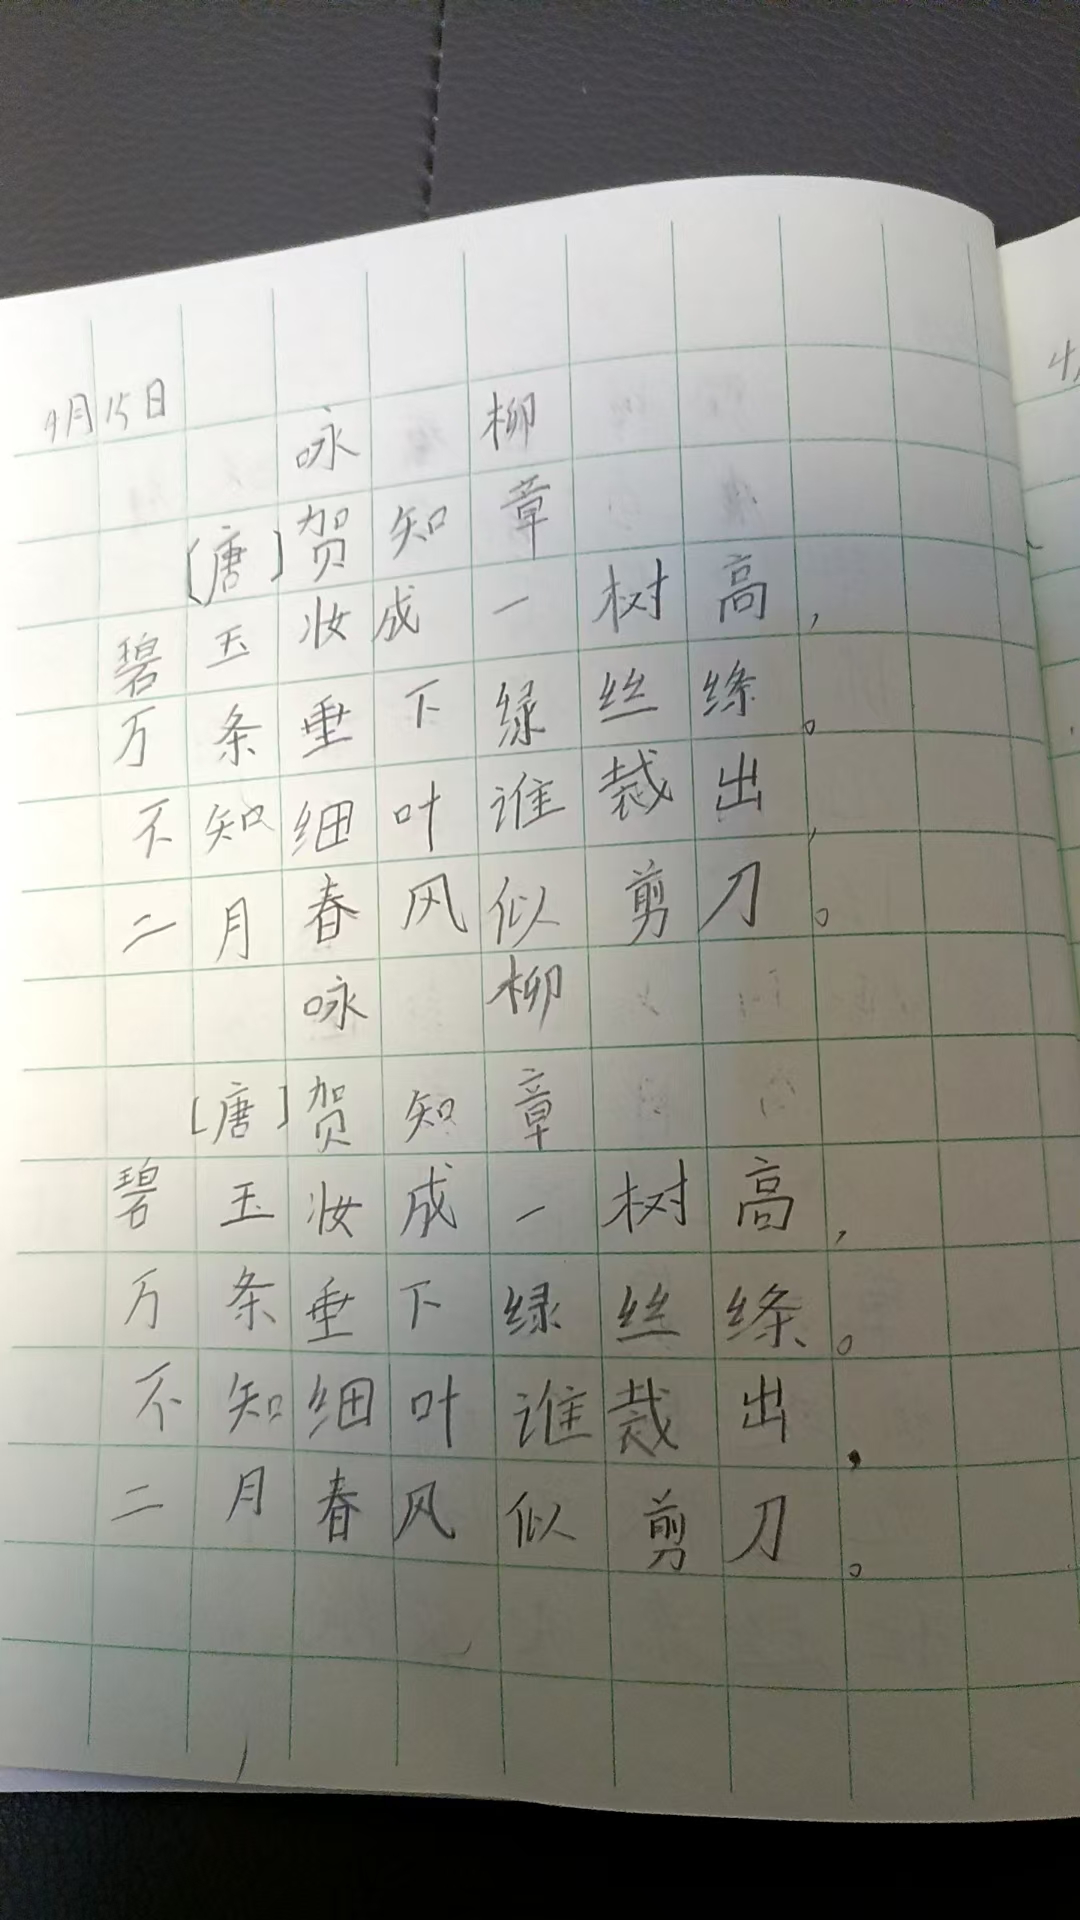 4月15日
咏柳
[唐]贺知章
碧玉妆成一树高,
万条垂下绿丝绦。
不知细叶谁裁出,
二月春风似剪刀。
咏柳
[唐]贺知章
碧玉妆成一树高,
万条垂下绿丝绦。
不知细叶谁裁出,
二月春风似剪刀。